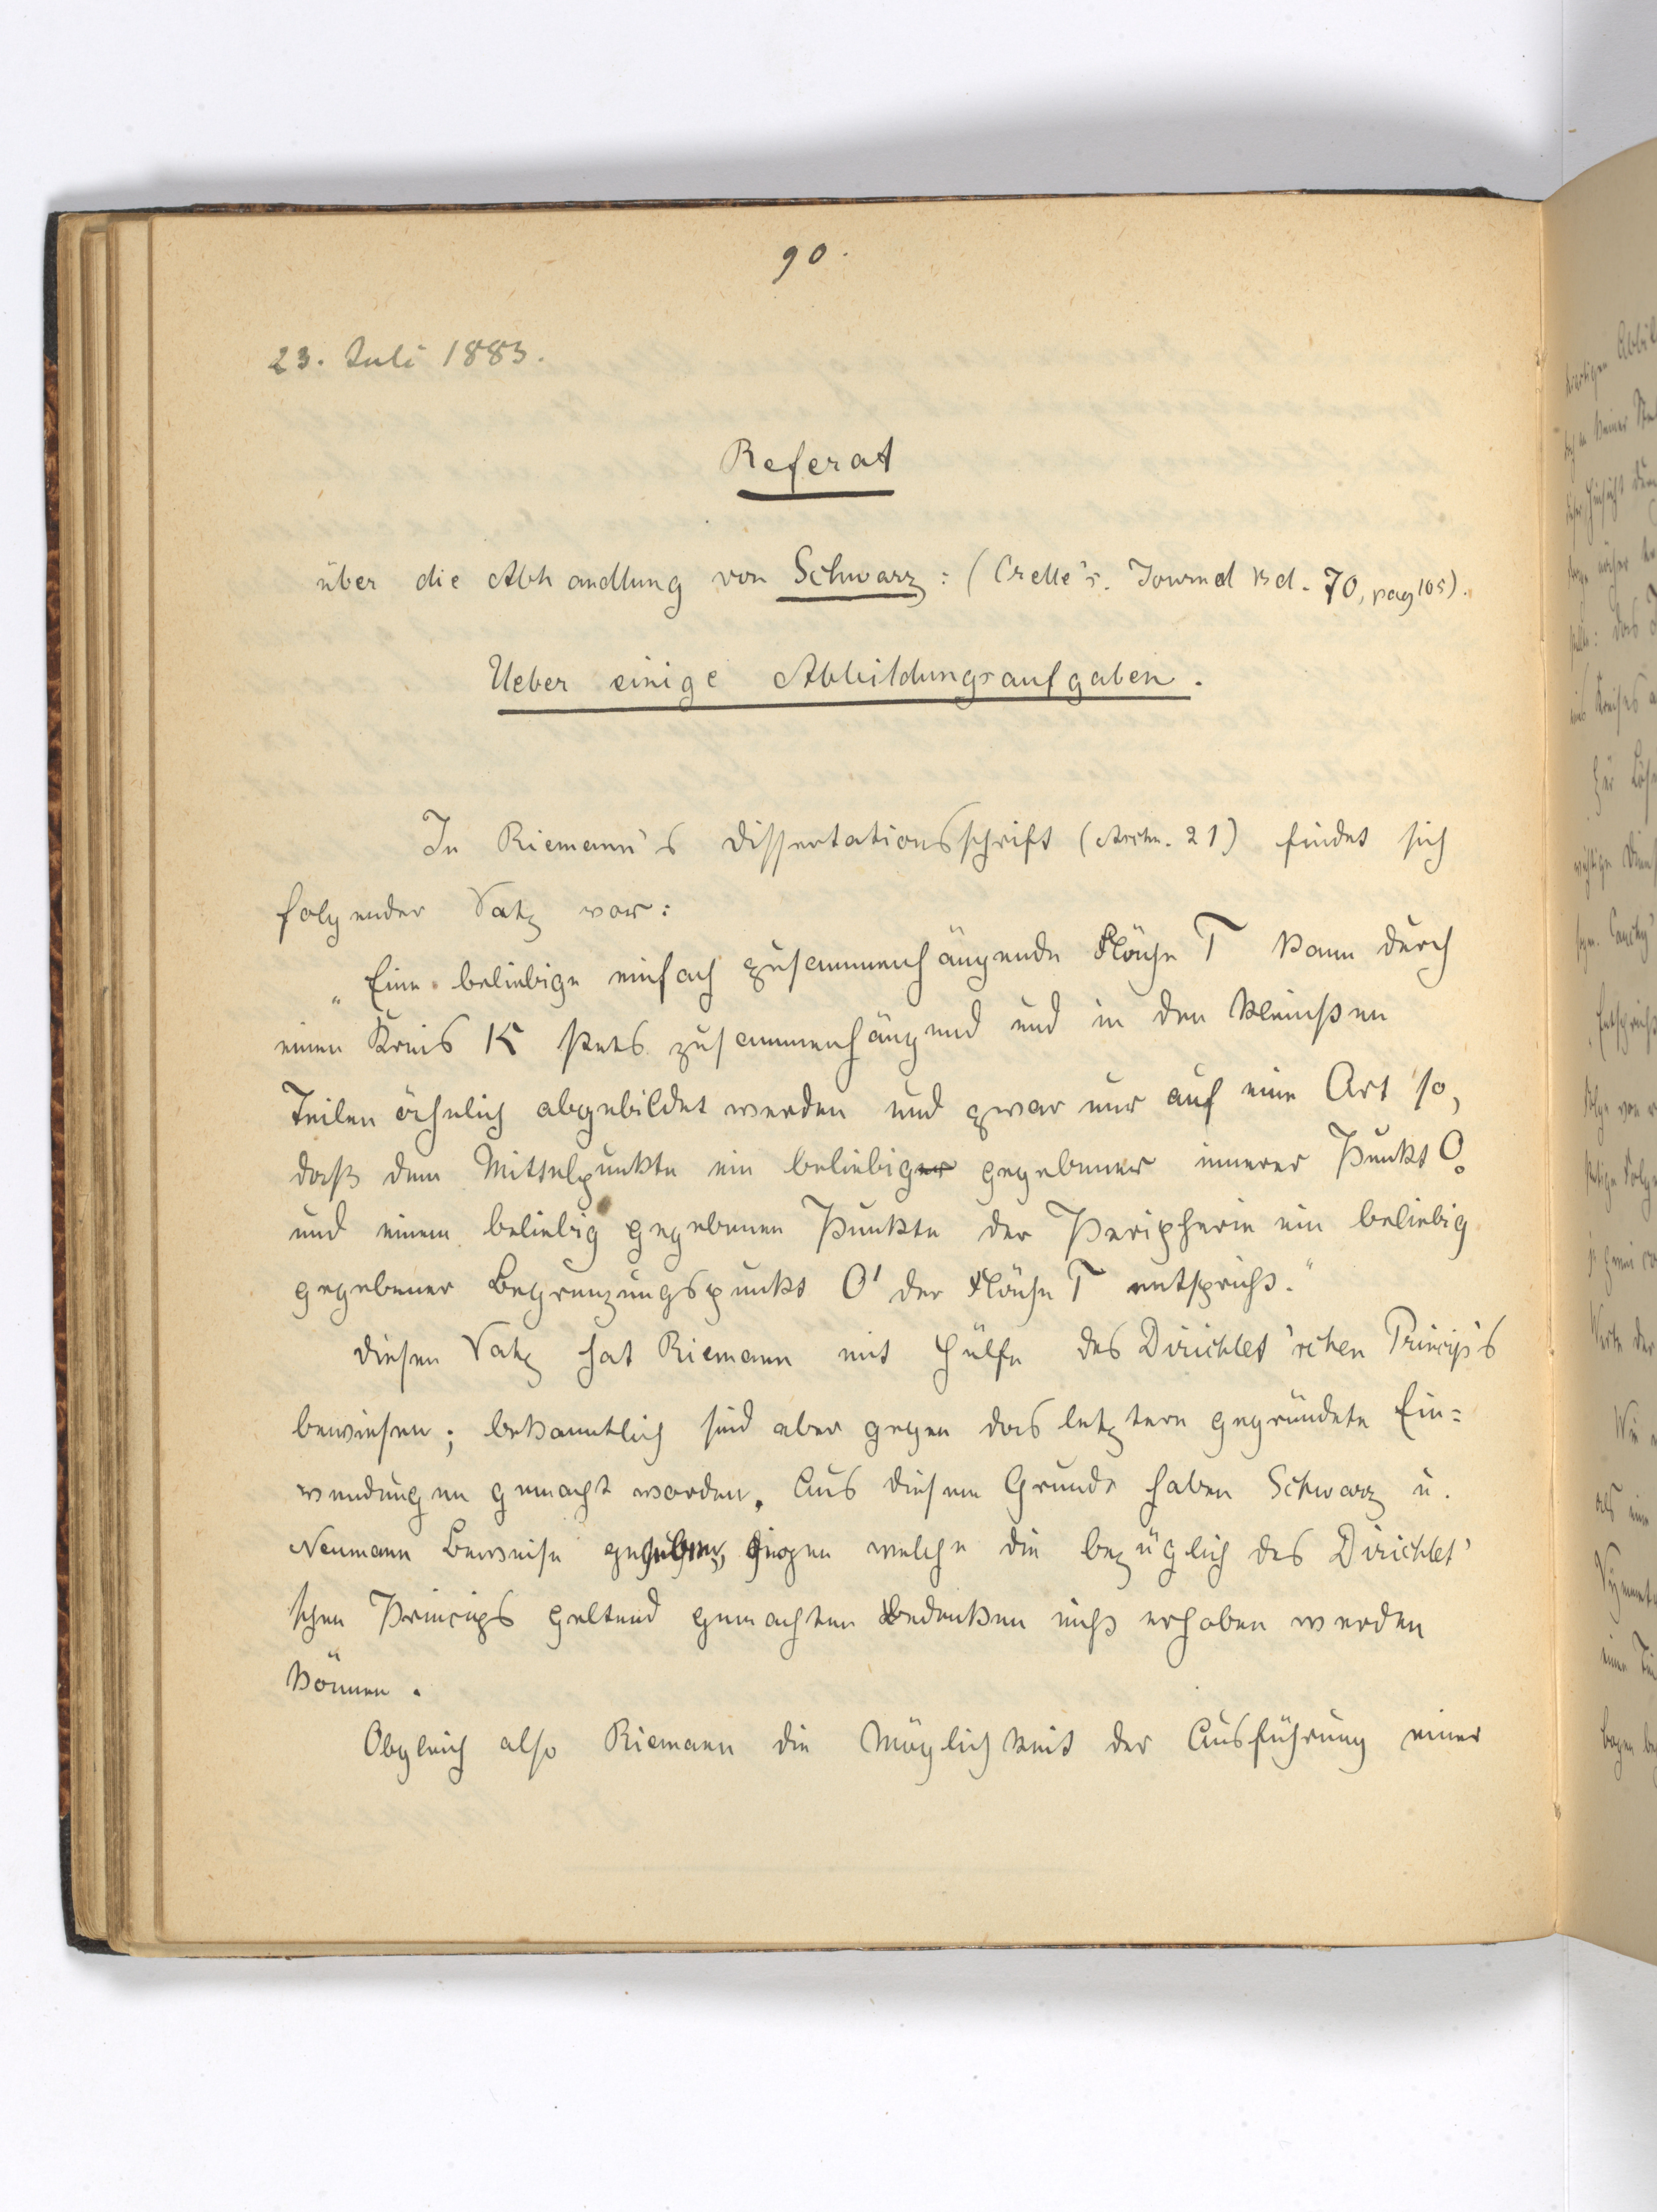 90.
23. Juli 1883.
Referat
über die Abhandlung von Schwarz: (Crelle's. Journal Bd. 70, pag 105).
Ueber einige Abbildungsaufgaben.
In Riemann's Dissertationsschrift (Artn. 21) findet sich
folgender Satz vor:
„Eine beliebige einfach zusammenhängende Fläche T kann durch
einen Kreis K stets zusammenhängend und in den kleinsten
Teilen ähnlich abgebildet werden und zwar nur auf eine Art so,
daß dem Mittelpunkte ein beliebig gegebener innerer Punkt O.
und einem beliebig gegebenen Punkte der Peripherie ein beliebig
gegebener Begrenzungspunkt O' der Fläche T entspricht."
Diesen Satz hat Riemann mit Hülfe des Dirichlet'schen Princip's
bewiesen; bekanntlich sind aber gegen das letztere gegründete Ein=
wendungen gemacht worden. Aus diesem Grunde haben Schwarz u.
Neumann Beweise gegeben, gegen welche die bezüglich des Dirichlet'
schen Princips geltend gemachten Bedenken nicht erhoben werden
können.
Obgleich also Riemann die Möglichkeit der Ausführung einer